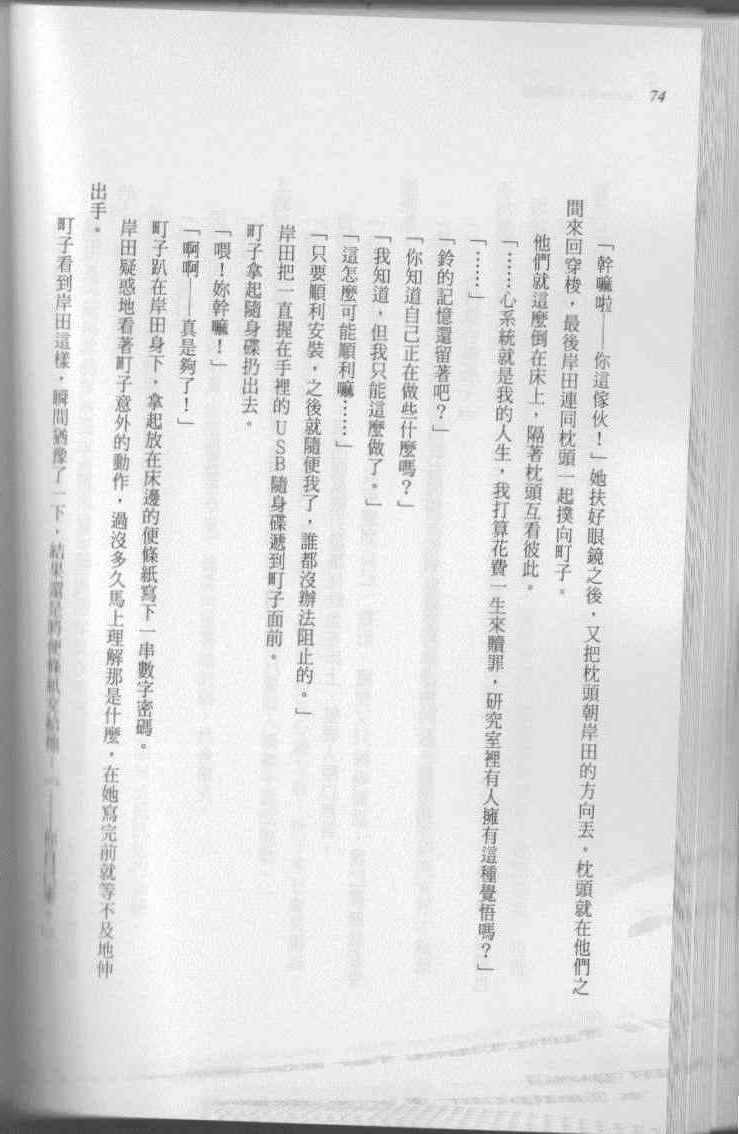 74
「幹嘛啦——你這傢伙！」她扶好眼鏡之後，又把枕頭朝岸田的方向丟。枕頭就在他們之
間來回穿梭，最後岸田連同枕頭一起撲向町子。
他們就這麼倒在床上，隔著枕頭互看彼此。
「……心系統就是我的人生，我打算花費一生來贖罪，研究室裡有人擁有這種覺悟嗎？」
「……」
「鈴的記憶還留著吧？」
「你知道自己正在做些什麼嗎？」
「我知道，但我只能這麼做了。」
「這怎麼可能順利嘛……」
「只要順利安裝，之後就隨便我了，誰都沒辦法阻止的。」
岸田把一直握在手裡的USB隨身碟遞到町子面前。
町子拿起隨身碟扔出去。
「喂！妳幹嘛！」
「啊啊——真是夠了！」
町子趴在岸田身下，拿起放在床邊的便條紙寫下一串數字密碼。
岸田疑惑地看著町子意外的動作，過沒多久馬上理解那是什麼，在她寫完前就等不及地伸
出手。
町子看到岸田這樣，瞬間猶豫了一下，結果還是將便條紙交給